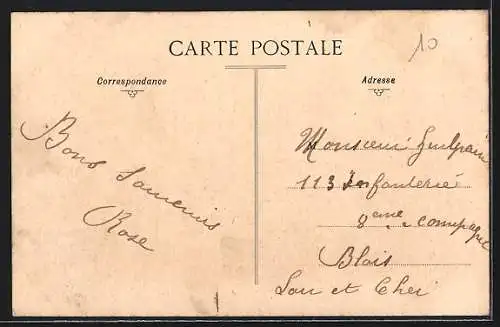 CARTE POSTALE
10
Correspondance
Adresse
Bons Souvenirs
Rose
Monsieur
113 Infanterie
8eme compagnie
Blois
Loir et Cher